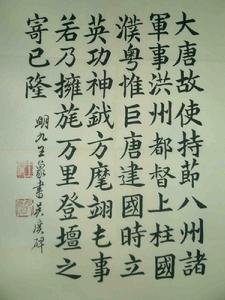 大唐故使持節八州諸
軍事洪州都督上柱國
濮粤惟巨唐建國時立
英功神鉞方麾翊七事
若乃擁旄万里登壇之
寄已隆
明九王象書吴廣碑